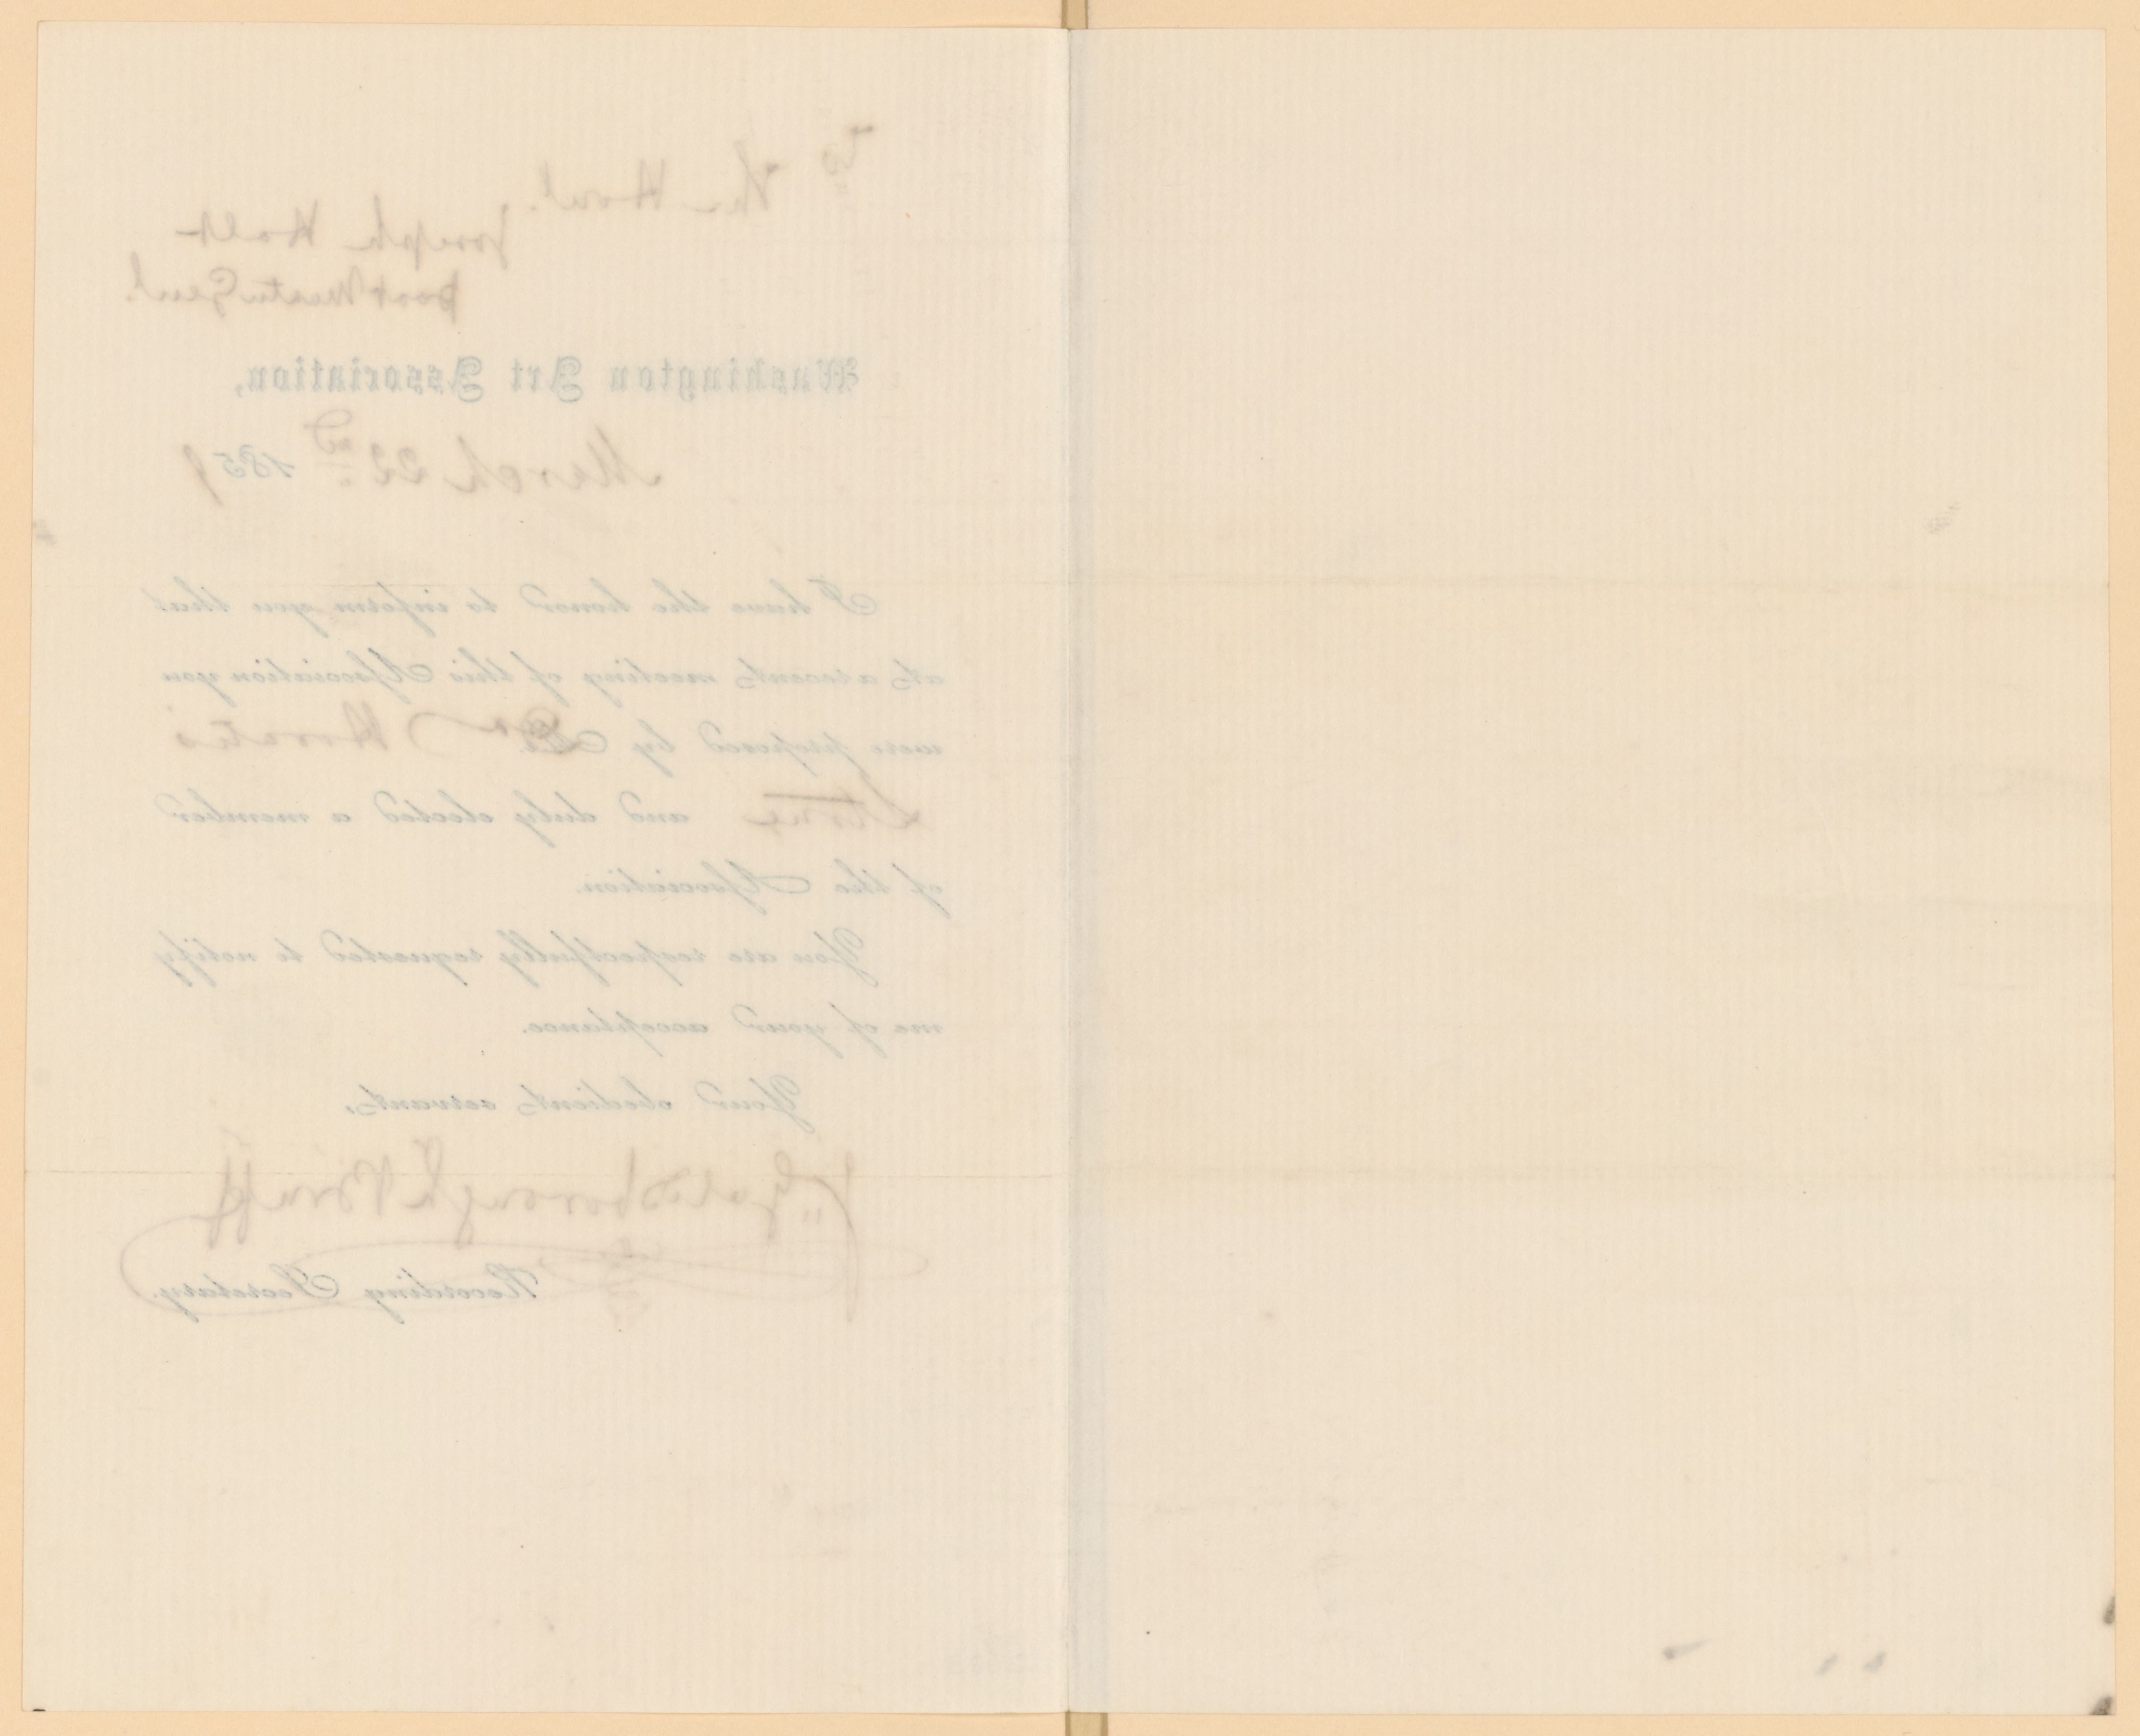 To
The Honl.
Joseph Holt
Post Master Genl.
Washington Art Association,
March 22nd 1859
I have the honor to inform you that
at a recent meeting of this Association you
were proposed by Dr Horatio
Stone and duly elected a member
of the Association.
You are respectfully requested to notify
me of your acceptance.
Your obedient servant,
J. Goldsborough Bruff
Recording Secretary.